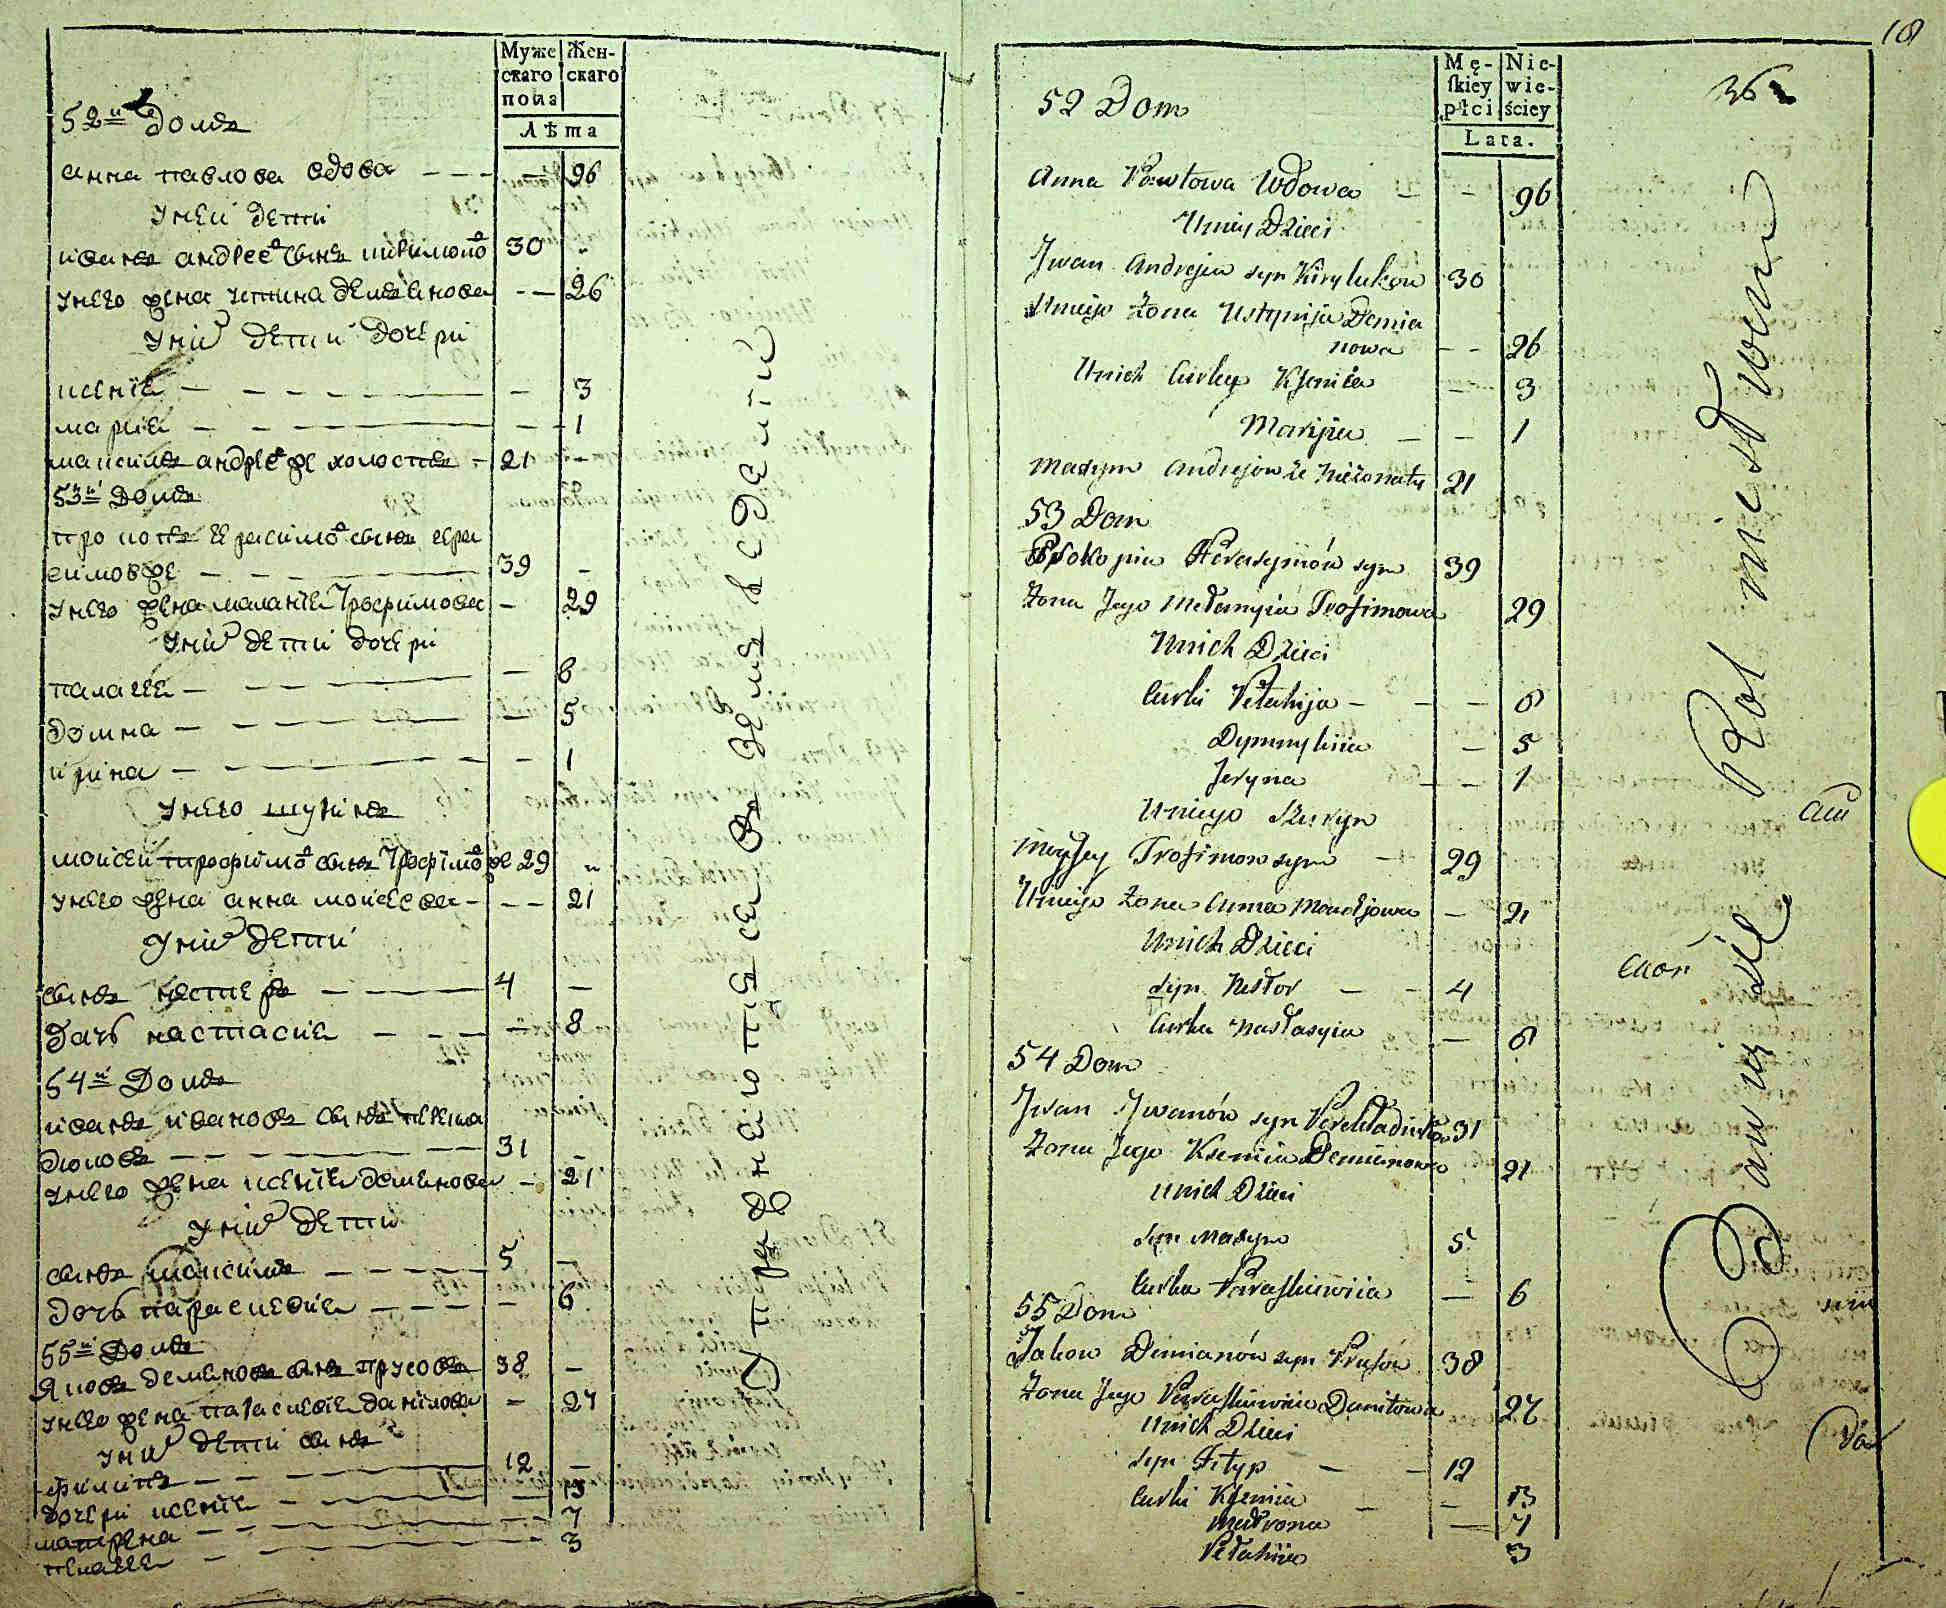 Муже
скаго
пола
Жен-
скаго
Лѣта
52й домъ
анна павлова вдова — — — — 96
у ней дети
иванъ андреевъ сынъ 30
у него жена устина демьянова — — 26
у них дети дочери
ксения — — — 3
мария — — — 1
максимъ андреевъ же холостъ — 21 —
53й Домъ
прокопъ герасимовъ сынъ гера
симовже — — — 39 —
у него жена малания трофимова — 29
у них дети дочери
палагея — — — 6
домна — — — 5
ирина — — — 1
у него шуринъ
моисей трофимовъ сынъ трофимов же 29
у него жена анна моисеева — — — 21
у них дети
сынъ нестеръ — — — 4 —
дочь настасия — — — 8
54й Домъ
иванъ ивановъ сынъ
31 —
у него жена ксения демьянова — 21
у них дети
сынъ максимъ — — — 5 —
дочь парасковия — — — 6
55й Домъ
Яковъ демьяновъ сынъ прусовъ 38 —
у него жена парасковия данилова — 27
у них дети сынъ
филипъ — — — 12 —
дочери ксения — — — 13
матрена — — — 7
пелагея — — — 3
земля в ведении
18
36
Mę-
skiey
płci
Nie-
wie-
ściey
Lata.
52 Dom
Anna Pawłowa Wdowa — — 96
Uniey Dzieci
Jwan Andrejew syn Kirylukow 30
Uniego Żona Ustynija Demia
nowa — — 26
Unich Curky Ksenija — 3
Marija — — 1
Maxym Andrejow że nieżonaty 21
53 Dom
Prokopiu Herasymów syn 39
Żona Jego Mełanyia Trofimowa 29
Unich Dzieci
Curki Pełahija — — — 6
Dymnykiia — 5
Jeryna — — 1
Uniego Szuryn
Moysey Trofimow syn — 29
Uniego Żona Anna Moysiejowa — 21
Unich Dzieci
syn Nestor — — 4
Curka Nastasyia — 8
54 Dom
Jwan Jwanów syn 31
Żona Jego Ksenia Demianowa 21
Unich Dzieci
syn Maxym 5
Curka Paraskiewiia — 6
55 Dom
Jakow Demianów syn Prusów 38
Żona Jego Paraskiewiia Daniłowa 27
Unich Dzieci
syn Fityp — — 12
Curki Ksenia — — 13
Matrona — 7
Pełahiia 3
Pol nie